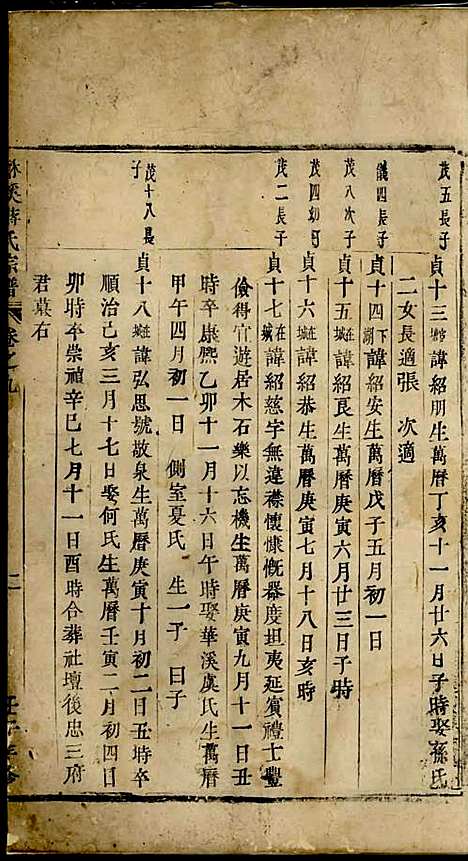 茂五長子
貞十三 諱紹朋生萬曆丁亥十一月廿六日子時娶孫氏
二女長適張 次適
儀四長子
貞十四下湖諱紹安生萬曆戊子五月初一日
茂八次子
貞十五在城諱紹良生萬曆庚寅六月廿三日子時
茂四幼子
貞十六在城諱紹恭生萬曆庚寅七月十八日亥時
茂二長子
貞十七在城諱紹慈字無違襟懷慷慨器度坦夷延賓禮士豐
儉得宜遊居木石樂以忘機生萬曆庚寅九月十一日丑
時卒康熙乙卯十一月十六日午時娶華溪虞氏生萬曆
甲午四月初一日 側室夏氏 生一子 曰子
茂十八長子
貞十八在城諱弘思號敬泉生萬曆庚寅十月初二日五時卒
順治己亥三月十七日娶何氏生萬曆壬寅二月初四日
卯時卒崇禎辛巳七月十一日酉時合葬社壇後忠三府
君墓右
蔣氏宗譜 卷之九 二